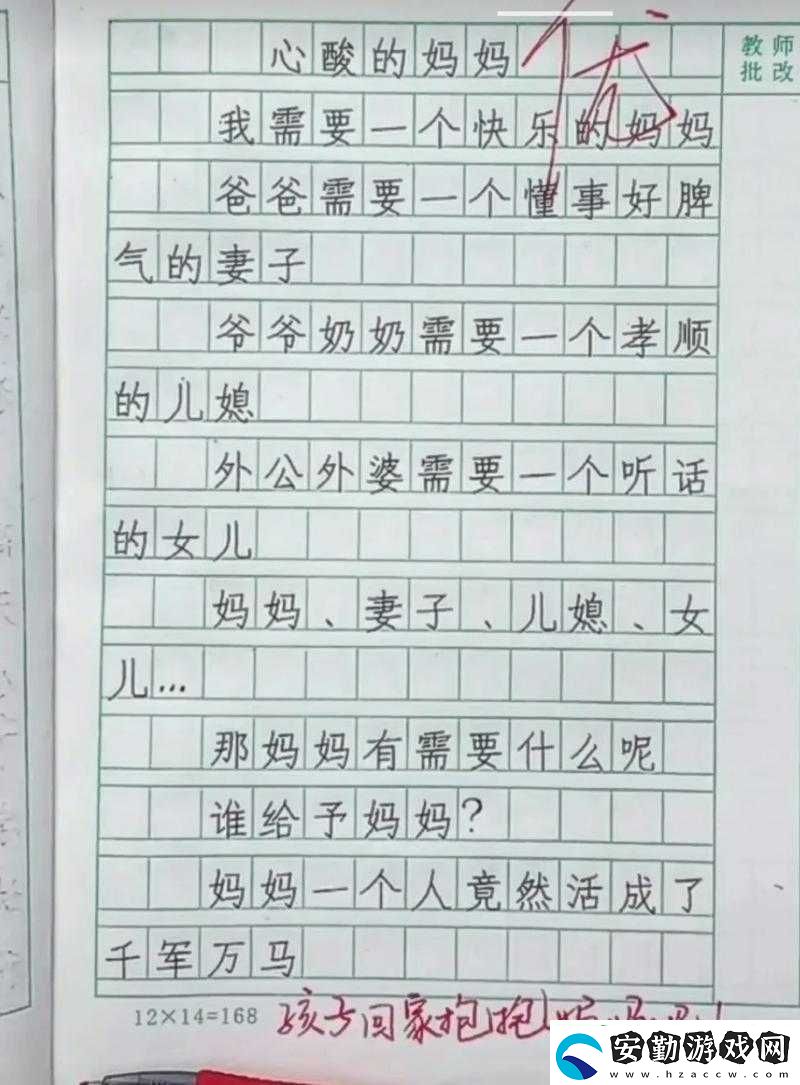 心酸的妈妈
优
教师
批改
我需要一个快乐的妈妈
爸爸需要一个懂事好脾
气的妻子
爷爷奶奶需要一个孝顺
的儿媳
外公外婆需要一个听话
的女儿
妈妈、妻子、儿媳、女
儿…
那妈妈有需要什么呢
谁给予妈妈?
妈妈一个人竟然活成了
千军万马
12×14=168
孩子回家抱抱
安勤游戏网
www.hzaccw.com